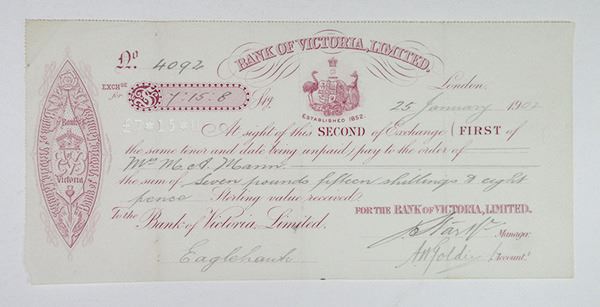 BANK OF VICTORIA, LIMITED.
No 4092
EXCHGE for £7.15.8 Stg
ESTABLISHED 1852.
London,
25 January 1902
£7*15*
At sight of this SECOND of Exchange (FIRST of
the same tenor and date being unpaid) pay to the order of
Mrs M. A. Mann.
the sum of Seven pounds fifteen shillings & eight
pence Sterling value received.
To the Bank of Victoria, Limited.
Eaglehawk
FOR THE BANK OF VICTORIA, LIMITED.
Manager.
Account.t
Bank
Victoria